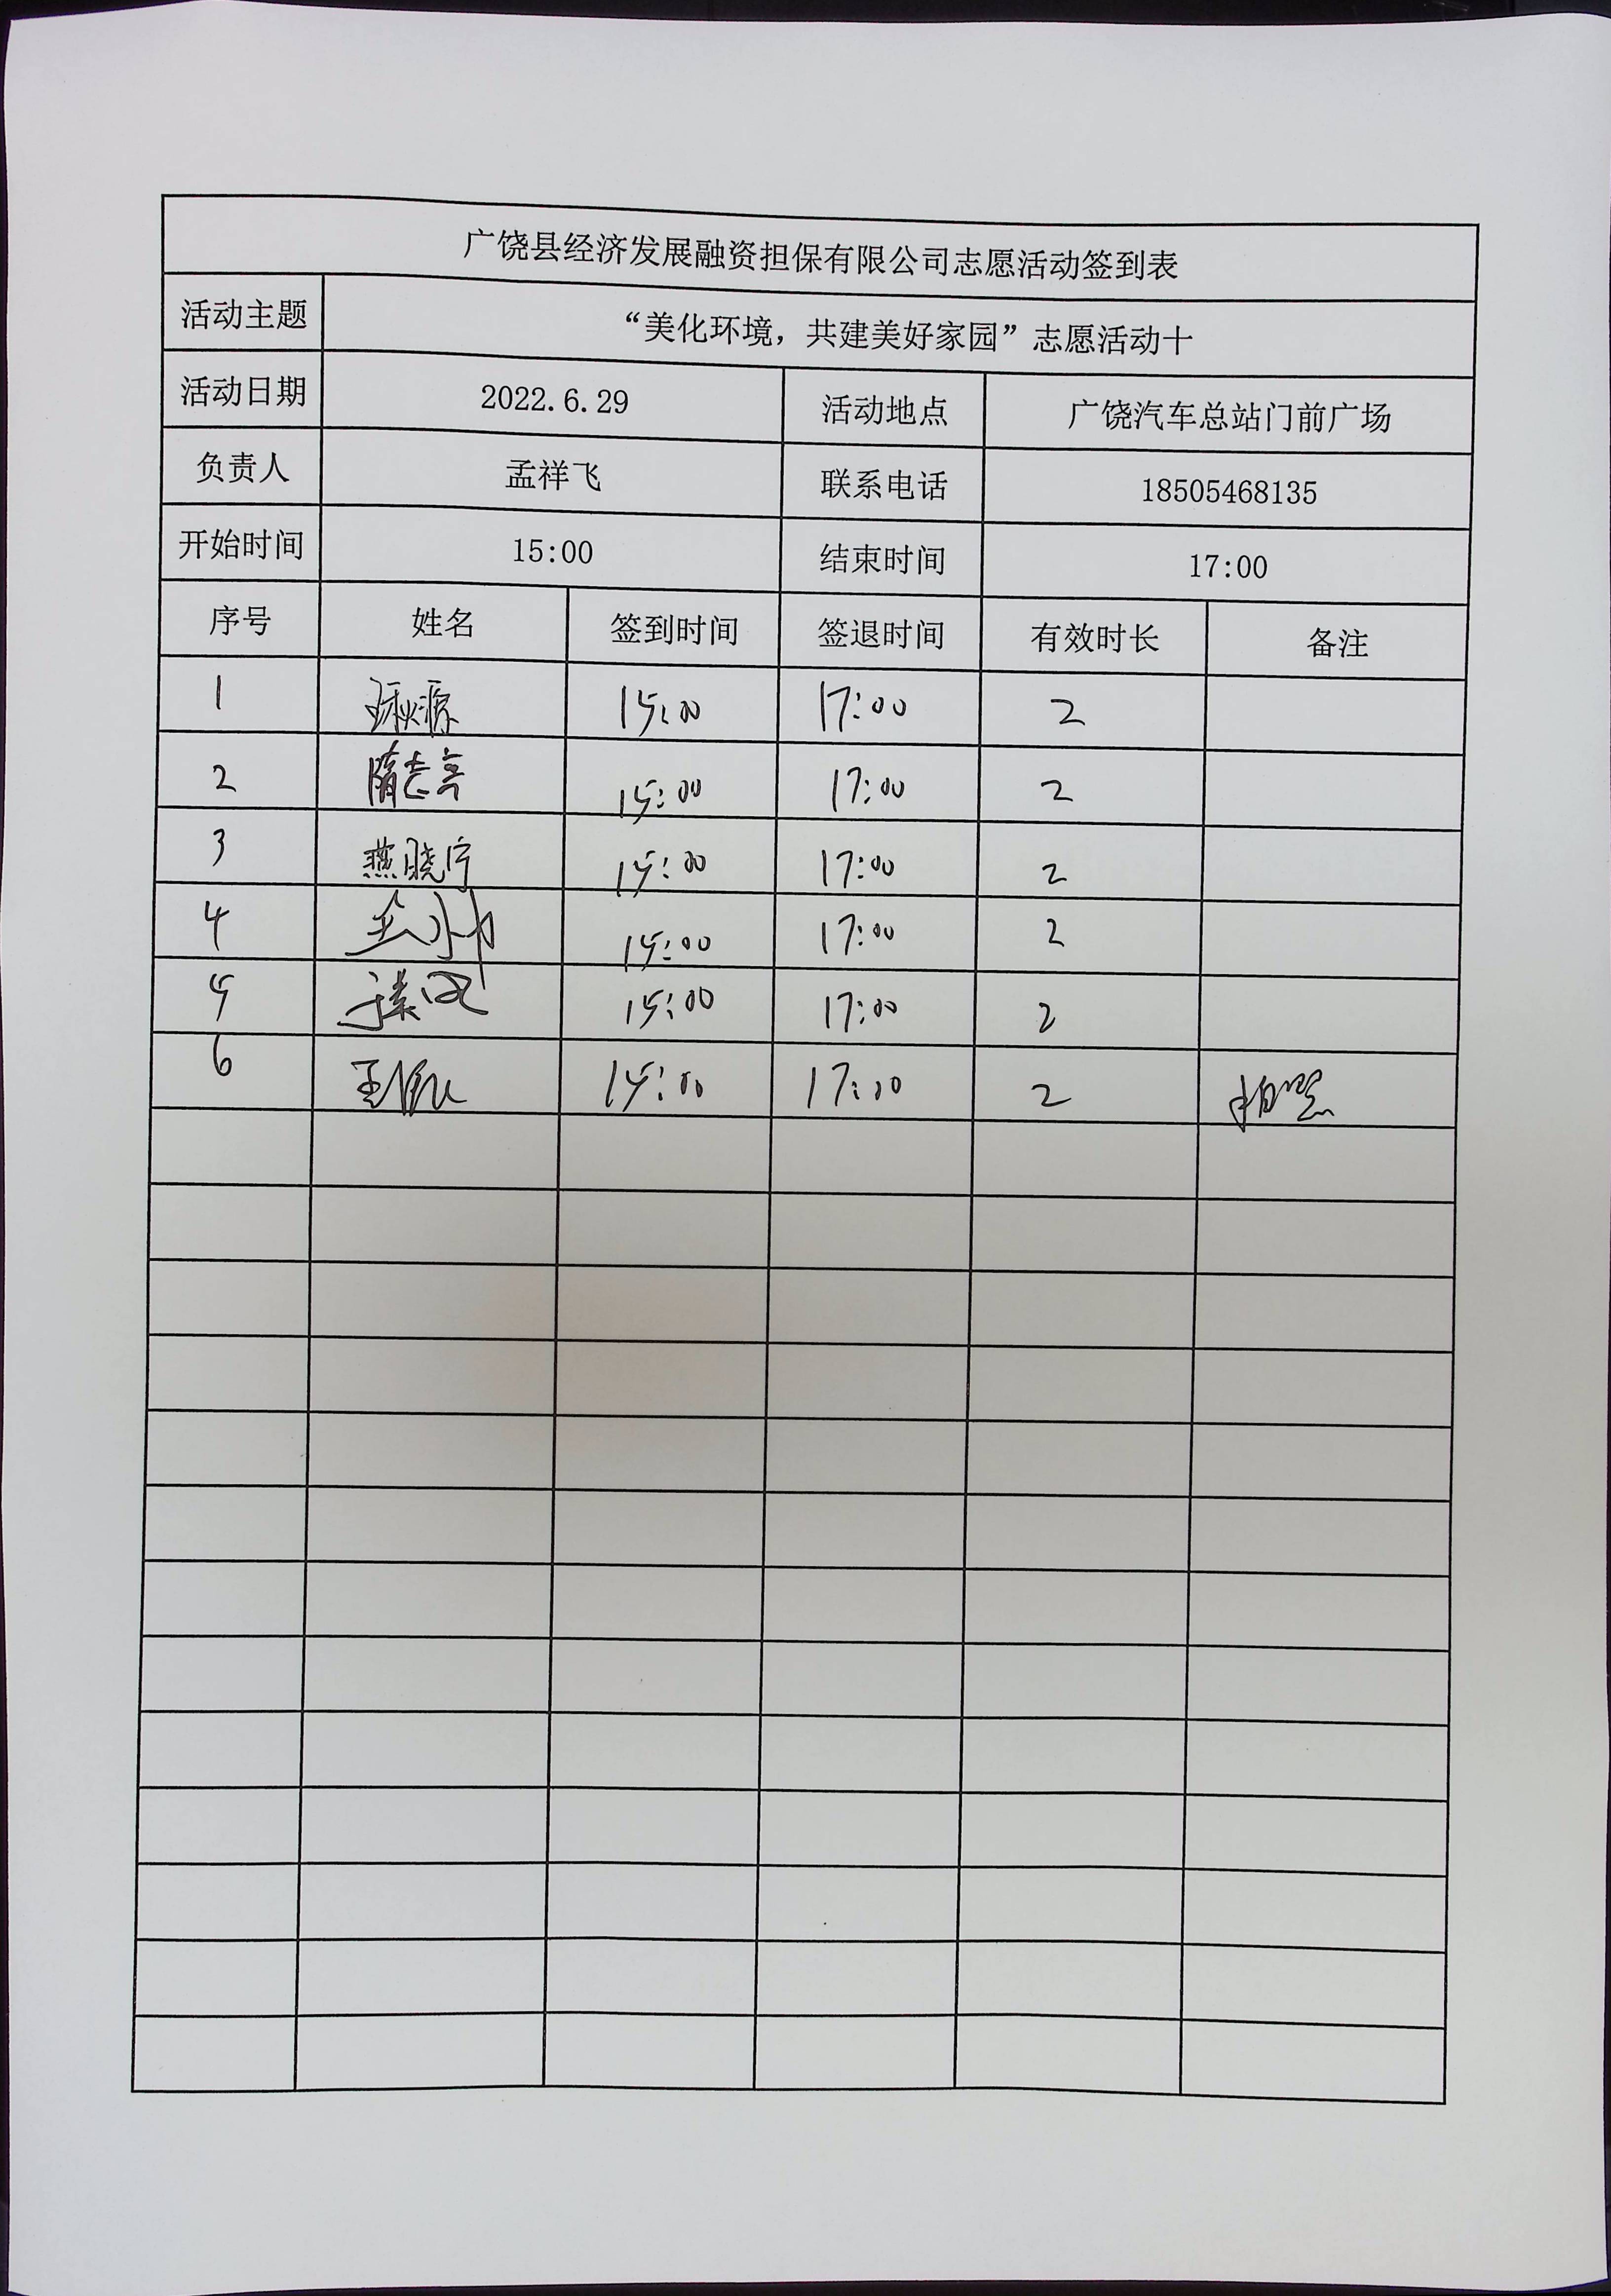 广饶县经济发展融资担保有限公司志愿活动签到表
活动主题 “美化环境，共建美好家园”志愿活动十
活动日期 2022.6.29 活动地点 广饶汽车总站门前广场
负责人 孟祥飞 联系电话 18505468135
开始时间 15:00 结束时间 17:00
序号 姓名 签到时间 签退时间 有效时长 备注
1 15:00 17:00 2
2 15:00 17:00 2
3 燕晓宁 15:00 17:00 2
4 15:00 17:00 2
5 15:00 17:00 2
6 15:00 17:00 2 拍照